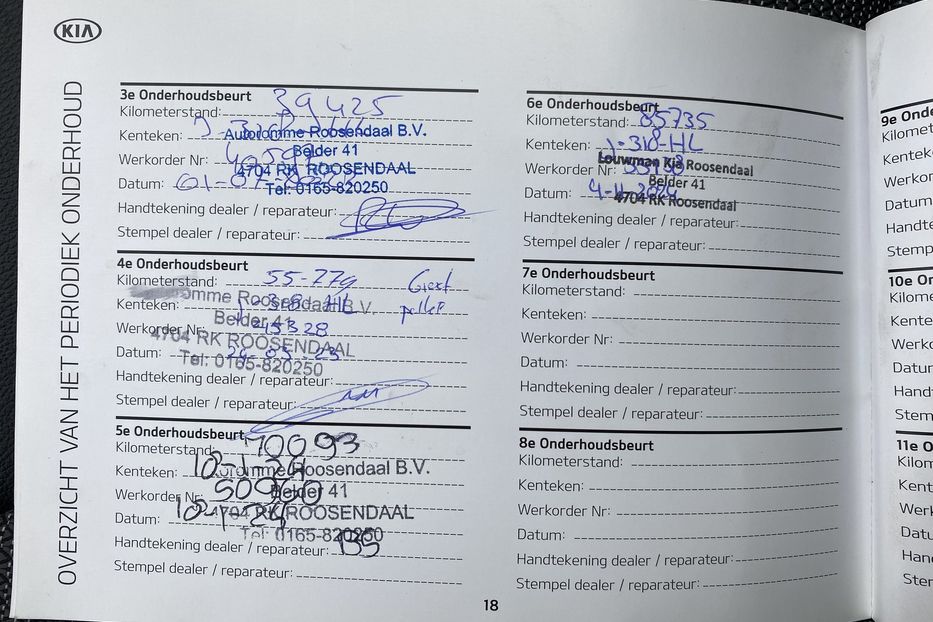 KIA
OVERZICHT VAN HET PERIODIEK ONDERHOUD
3e Onderhoudsbeurt
Kilometerstand: 39425
Kenteken:
Autoromme Roosendaal B.V.
Belder 41
Werkorder Nr:
4704 RK ROOSENDAAL
Datum:
Tel: 0165-820250
Handtekening dealer / reparateur:
Stempel dealer / reparateur:
4e Onderhoudsbeurt
Kilometerstand: 55-779
omme Roosendaal B.V.
Kenteken:
Belder 41
Werkorder Nr:
4704 RK ROOSENDAAL
Datum:
Tel: 0165-820250
Handtekening dealer / reparateur:
Stempel dealer / reparateur:
5e Onderhoudsbeurt
Kilometerstand: 70093
Kenteken: 10-1-24
Autoromme Roosendaal B.V.
Werkorder Nr:
Belder 41
4704 RK ROOSENDAAL
Datum: 10-1-24
Tel: 0165-820250
Handtekening dealer / reparateur:
Stempel dealer / reparateur:
6e Onderhoudsbeurt
Kilometerstand: 85735
Kenteken: J-318-HL
Louwman Kia Roosendaal
Werkorder Nr:
Belder 41
Datum:
4704 RK Roosendaal
Handtekening dealer / reparateur:
Stempel dealer / reparateur:
7e Onderhoudsbeurt
Kilometerstand:
Kenteken:
Werkorder Nr:
Datum:
Handtekening dealer / reparateur:
Stempel dealer / reparateur:
8e Onderhoudsbeurt
Kilometerstand:
Kenteken:
Werkorder Nr:
Datum:
Handtekening dealer / reparateur:
Stempel dealer / reparateur:
18
9e Onde
Kilomet
Kentek
Werkor
Datum:
Handte
Stemp
10e On
Kilome
Kente
Werk
Datur
Hand
Stem
11e O
Kilom
Kent
Werk
Datu
Han
Ster